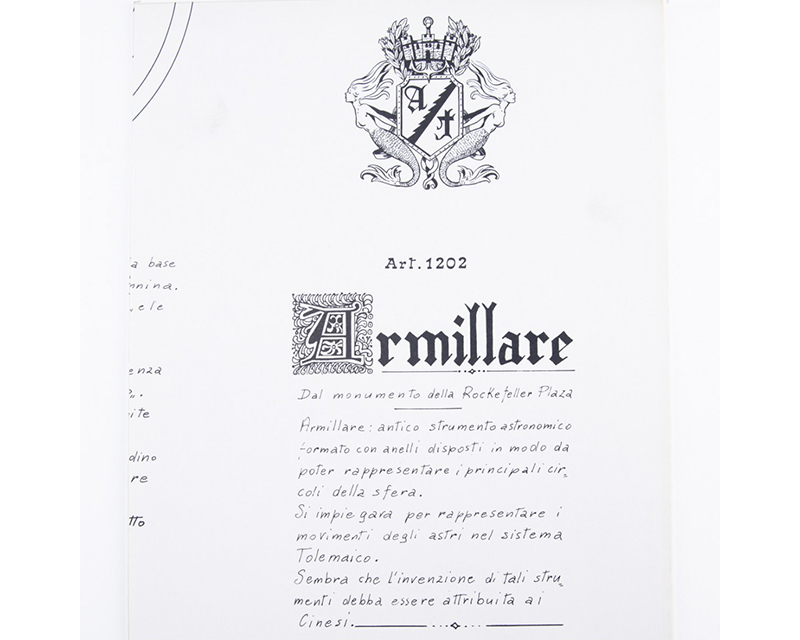 A
t
Art. 1202
Armillare
Dal monumento della Rockefeller Plaza
Armillare: antico strumento astronomico
formato con anelli disposti in modo da
poter rappresentare i principali cir=
coli della sfera.
Si impiegava per rappresentare i
movimenti degli astri nel sistema
Tolemaico.
Sembra che l'invenzione di tali stru=
menti debba essere attribuita ai
Cinesi.
a base
nnina.
ele
enza
ite
dino
re
tto